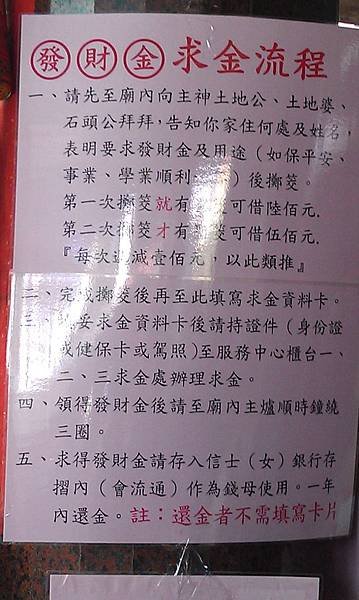 發財金求金流程
一、請先至廟內向主神土地公、土地婆、
石頭公拜拜,告知你家住何處及姓名,
表明要求發財金及用途(如保平安、
事業、學業順利 )後擲筊。
第一次擲筊就有 可借陸佰元.
第二次擲筊才有 可借伍佰元.
『每次 減壹佰元,以此類推』
二、完成擲筊後再至此填寫求金資料卡。
三、 妥求金資料卡後請持證件(身份證
或健保卡或駕照)至服務中心櫃台一、
二、三求金處辦理求金。
四、領得發財金後請至廟內主爐順時鐘繞
三圈。
五、求得發財金請存入信士(女)銀行存
摺內(會流通)作為錢母使用。一年
內還金。註:還金者不需填寫卡片